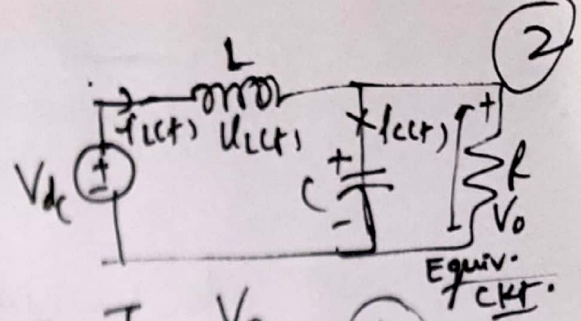 2
L
+
iL(t) UL(t) ic(t)
Vdc + C + R
- - - Vo
Equiv.
CKt.
I Vo